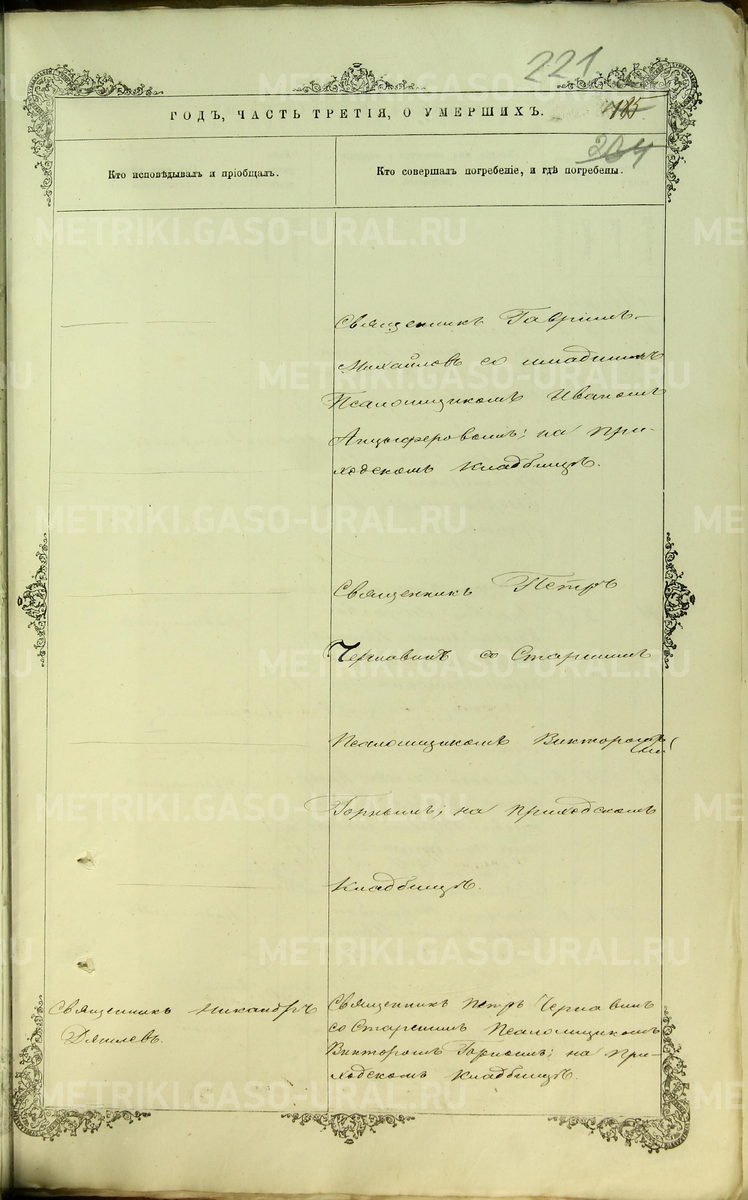 221
ГОДЪ, ЧАСТЬ ТРЕТІЯ, О УМЕРШИХЪ.
185
204
Кто исповѣдывалъ и пріобщалъ.
Кто совершалъ погребеніе, и гдѣ погребены.
Священникъ Гавріилъ
Михайловъ со младшимъ
Псаломщикомъ Иваномъ
Анцыферовымъ; на При-
ходскомъ кладбищѣ.
Священникъ Петръ
Чернавинъ со Старшимъ
Псаломщикомъ Викторомъ
Горнымъ; на приходскомъ
кладбищѣ.
Священникъ Никандръ
Дягилевъ.
Священникъ Петръ Чернавинъ
со Старшимъ Псаломщикомъ
Викторомъ Горнымъ; на При-
ходскомъ кладбищѣ.
METRIKI.GASO-URAL.RU